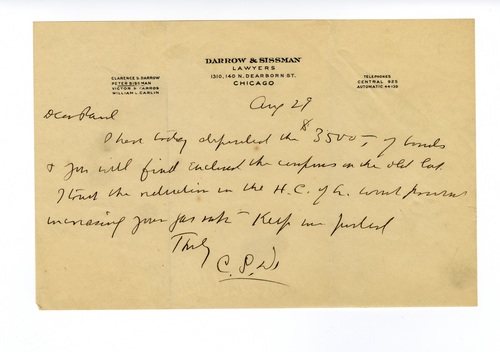 DARROW & SISSMAN
LAWYERS
1310, 140 N. DEARBORN ST.
CHICAGO
CLARENCE S. DARROW
PETER SISSMAN
VICTOR S. YARROS
WILLIAM L. CARLIN
TELEPHONES
CENTRAL 925
AUTOMATIC 44-125
Aug 29
Dear Paul
I have today deposited the $3500 - of bonds
& you will find enclosed the coupons on the old
I trust the reduction in the H.C. of G. wont prevent
increasing your gas rate - Keep me posted
Thnly
C. S. D.